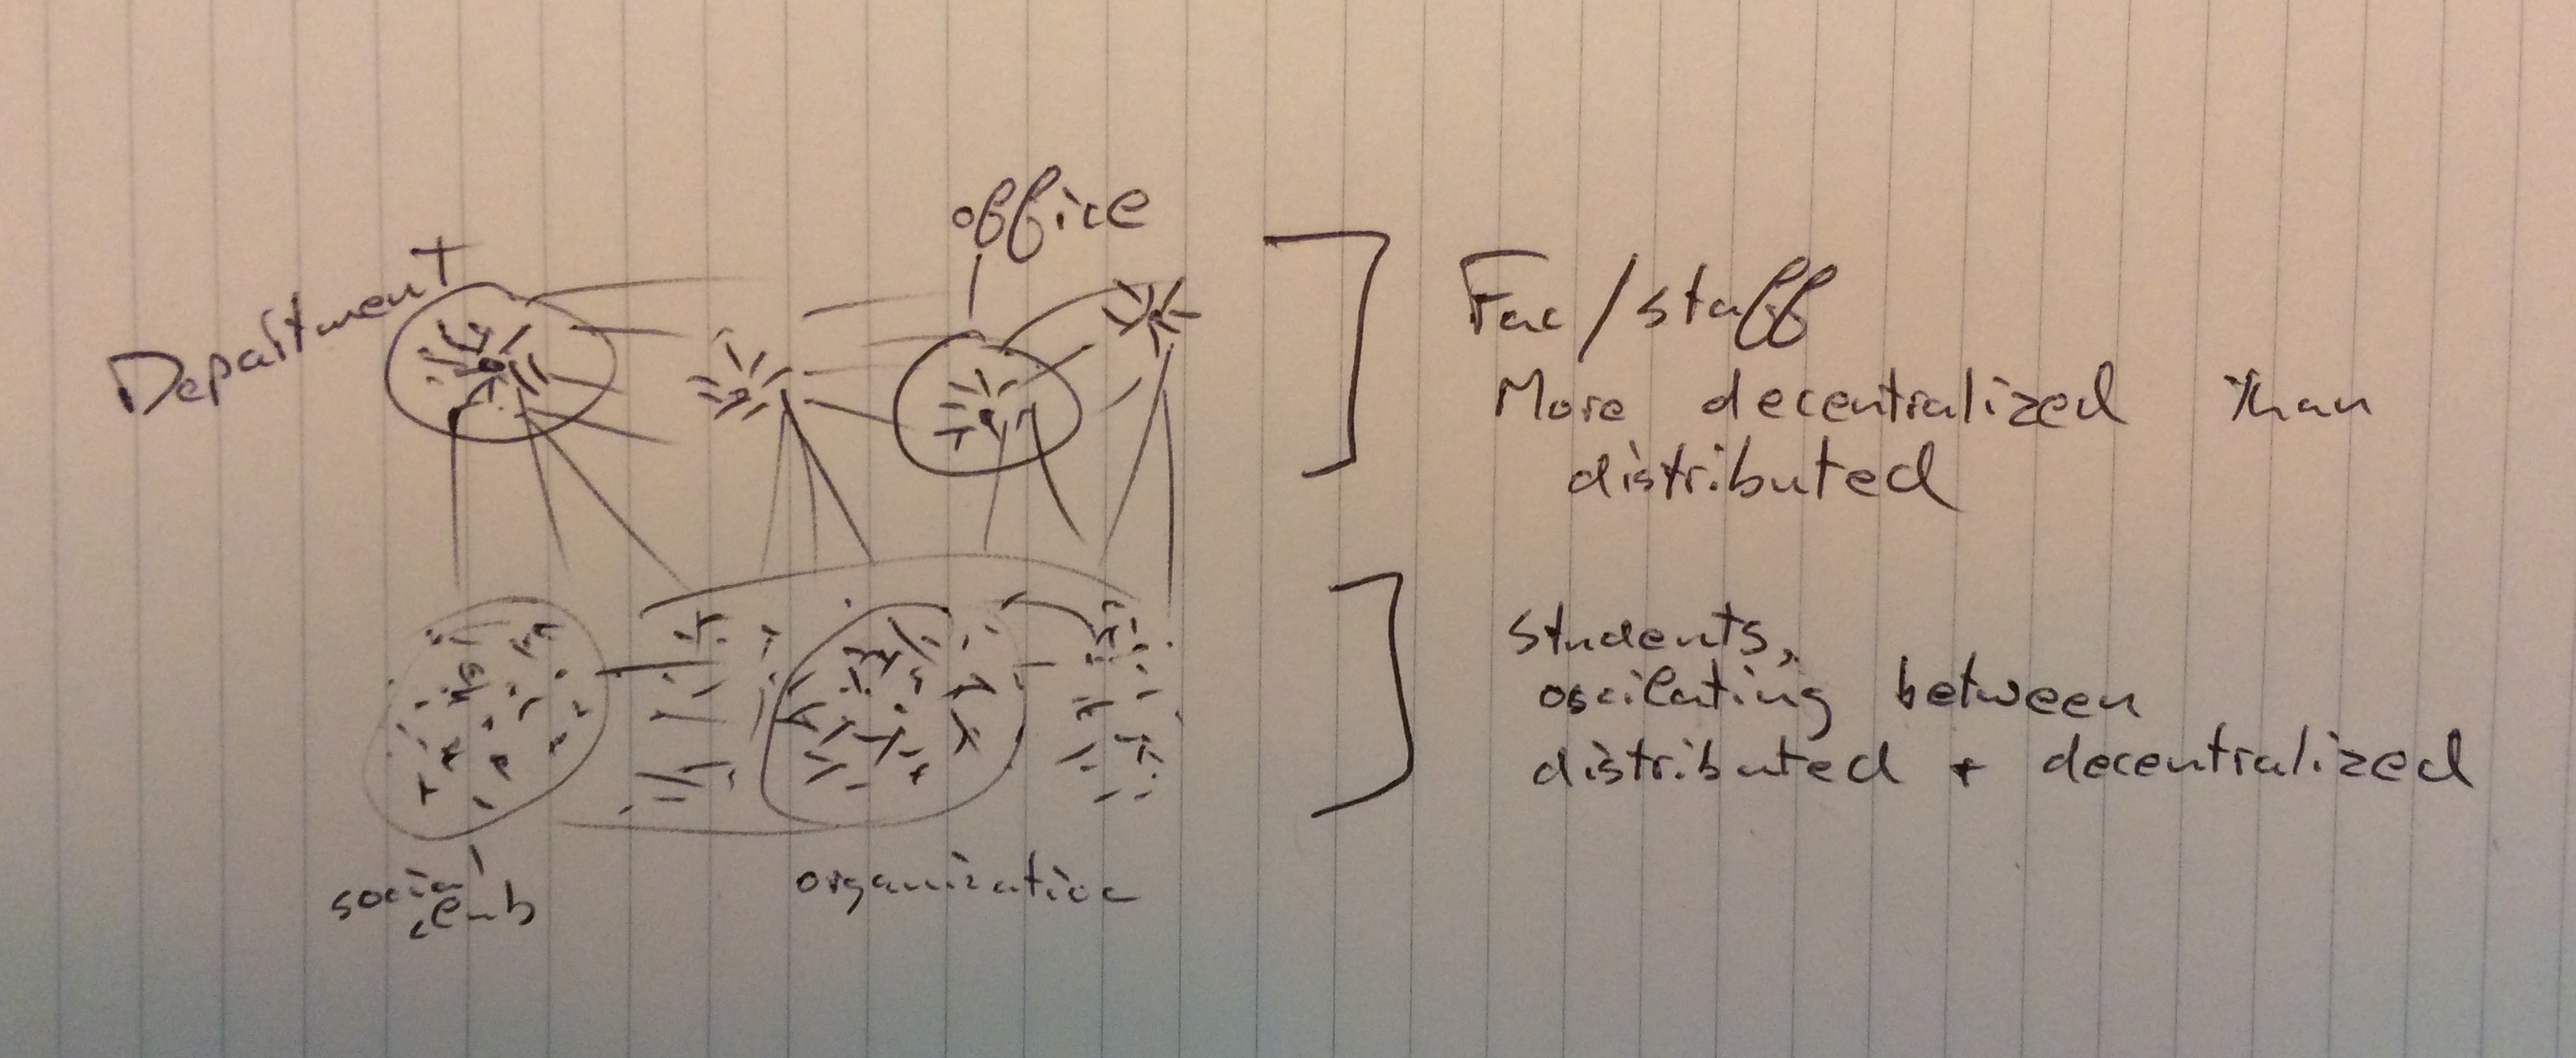 office
Department
Fac/staff
More decentralized than
distributed
students,
oscilating between
distributed + decentralized
social
club
organization